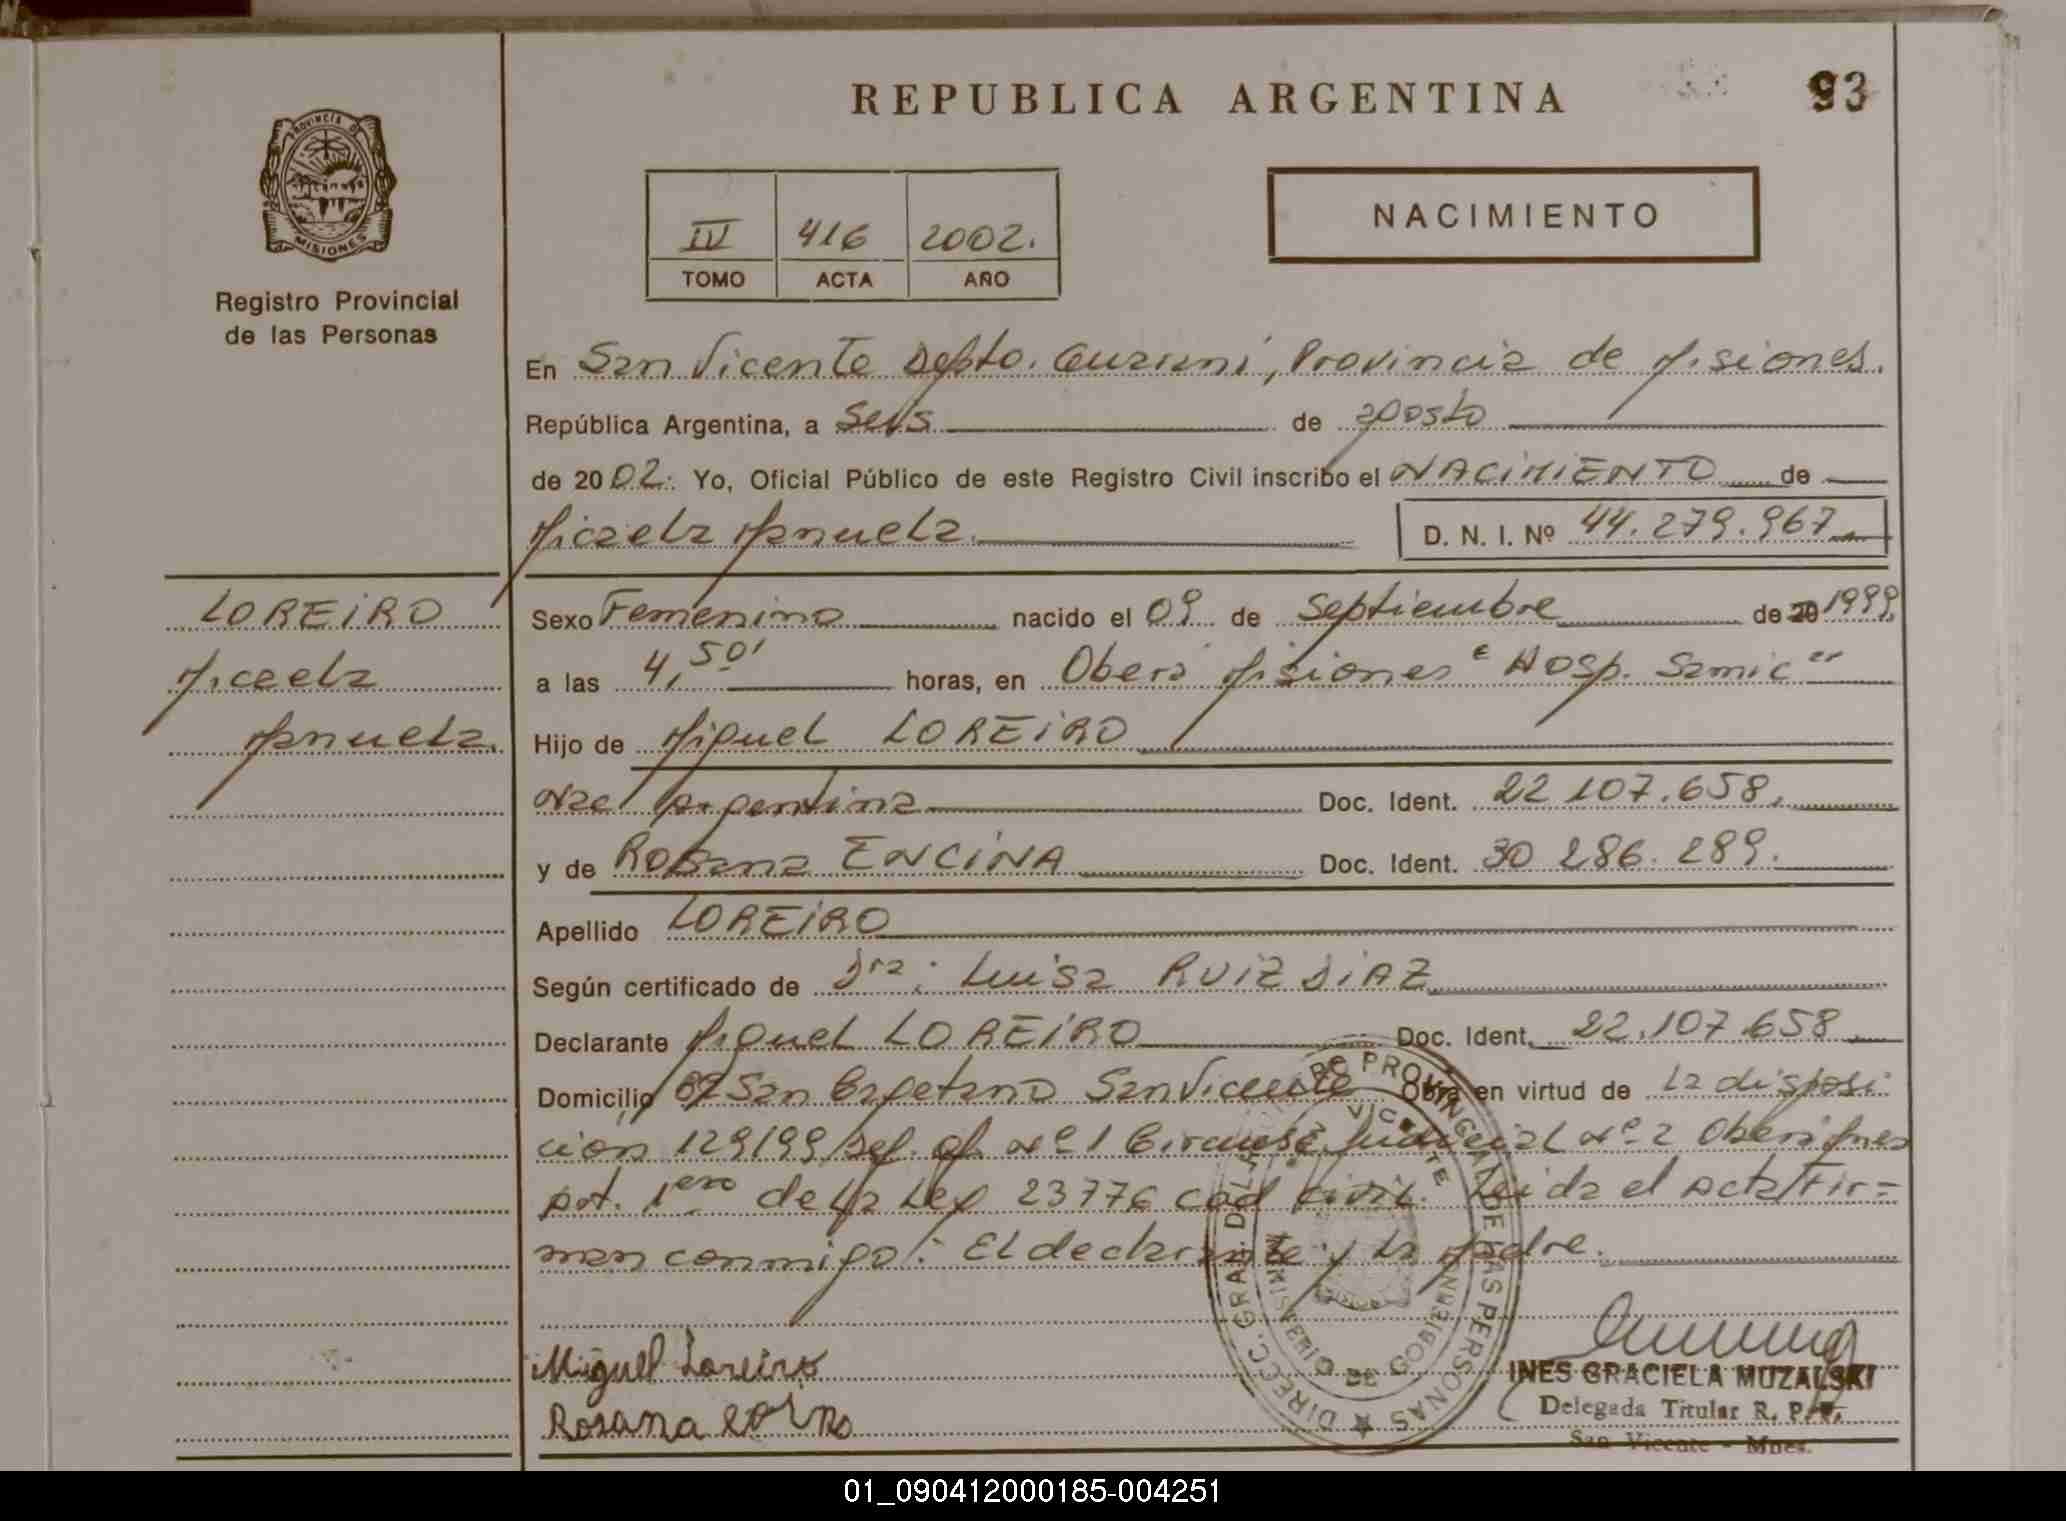 REPUBLICA ARGENTINA
93
PROVINCIA DE
MISIONES
Registro Provincial
de las Personas
IV 416 2002.
TOMO ACTA AÑO
NACIMIENTO
En San Vicente Depto. Guarani, Provincia de Misiones.
República Argentina, a Seis de agosto
de 2002. Yo, Oficial Público de este Registro Civil inscribo el NACIMIENTO de
Micaela Manuela. D. N. I. Nº 44.279.967
LOREIRO
Micaela
Manuela.
Sexo Femenino nacido el 09 de Septiembre de 20 1999.
a las 4,50' horas, en Oberá Misiones "Hosp. Samic"
Hijo de Miguel LOREIRO
Nac Argentina Doc. Ident. 22 107.658.
y de Rosana ENCINA Doc. Ident. 30 286.289.
Apellido LOREIRO
Según certificado de Dra: Luisa RUIZ DIAZ
Declarante Miguel LOREIRO Doc. Ident. 22.107.658
Domicilio San Cayetano San Vicente Obra en virtud de la disposi
ción 129/99 Def. of. Nº 1 Nº 2 Oberá Mnes
Art. 1ero de la Ley 23776 cod civil. Leida el Acta Fir=
man conmigo: El declarante y la Madre.
DIRECC. GRAL. DEL REGISTRO PROVINCIAL DE LAS PERSONAS
VICENTE
MINISTERIO DE GOBIERNO
Miguel Loreiro
Rosana
INES GRACIELA MUZALSKI
Delegada Titular R. P. P.
San Vicente - Mnes.
01_090412000185-004251